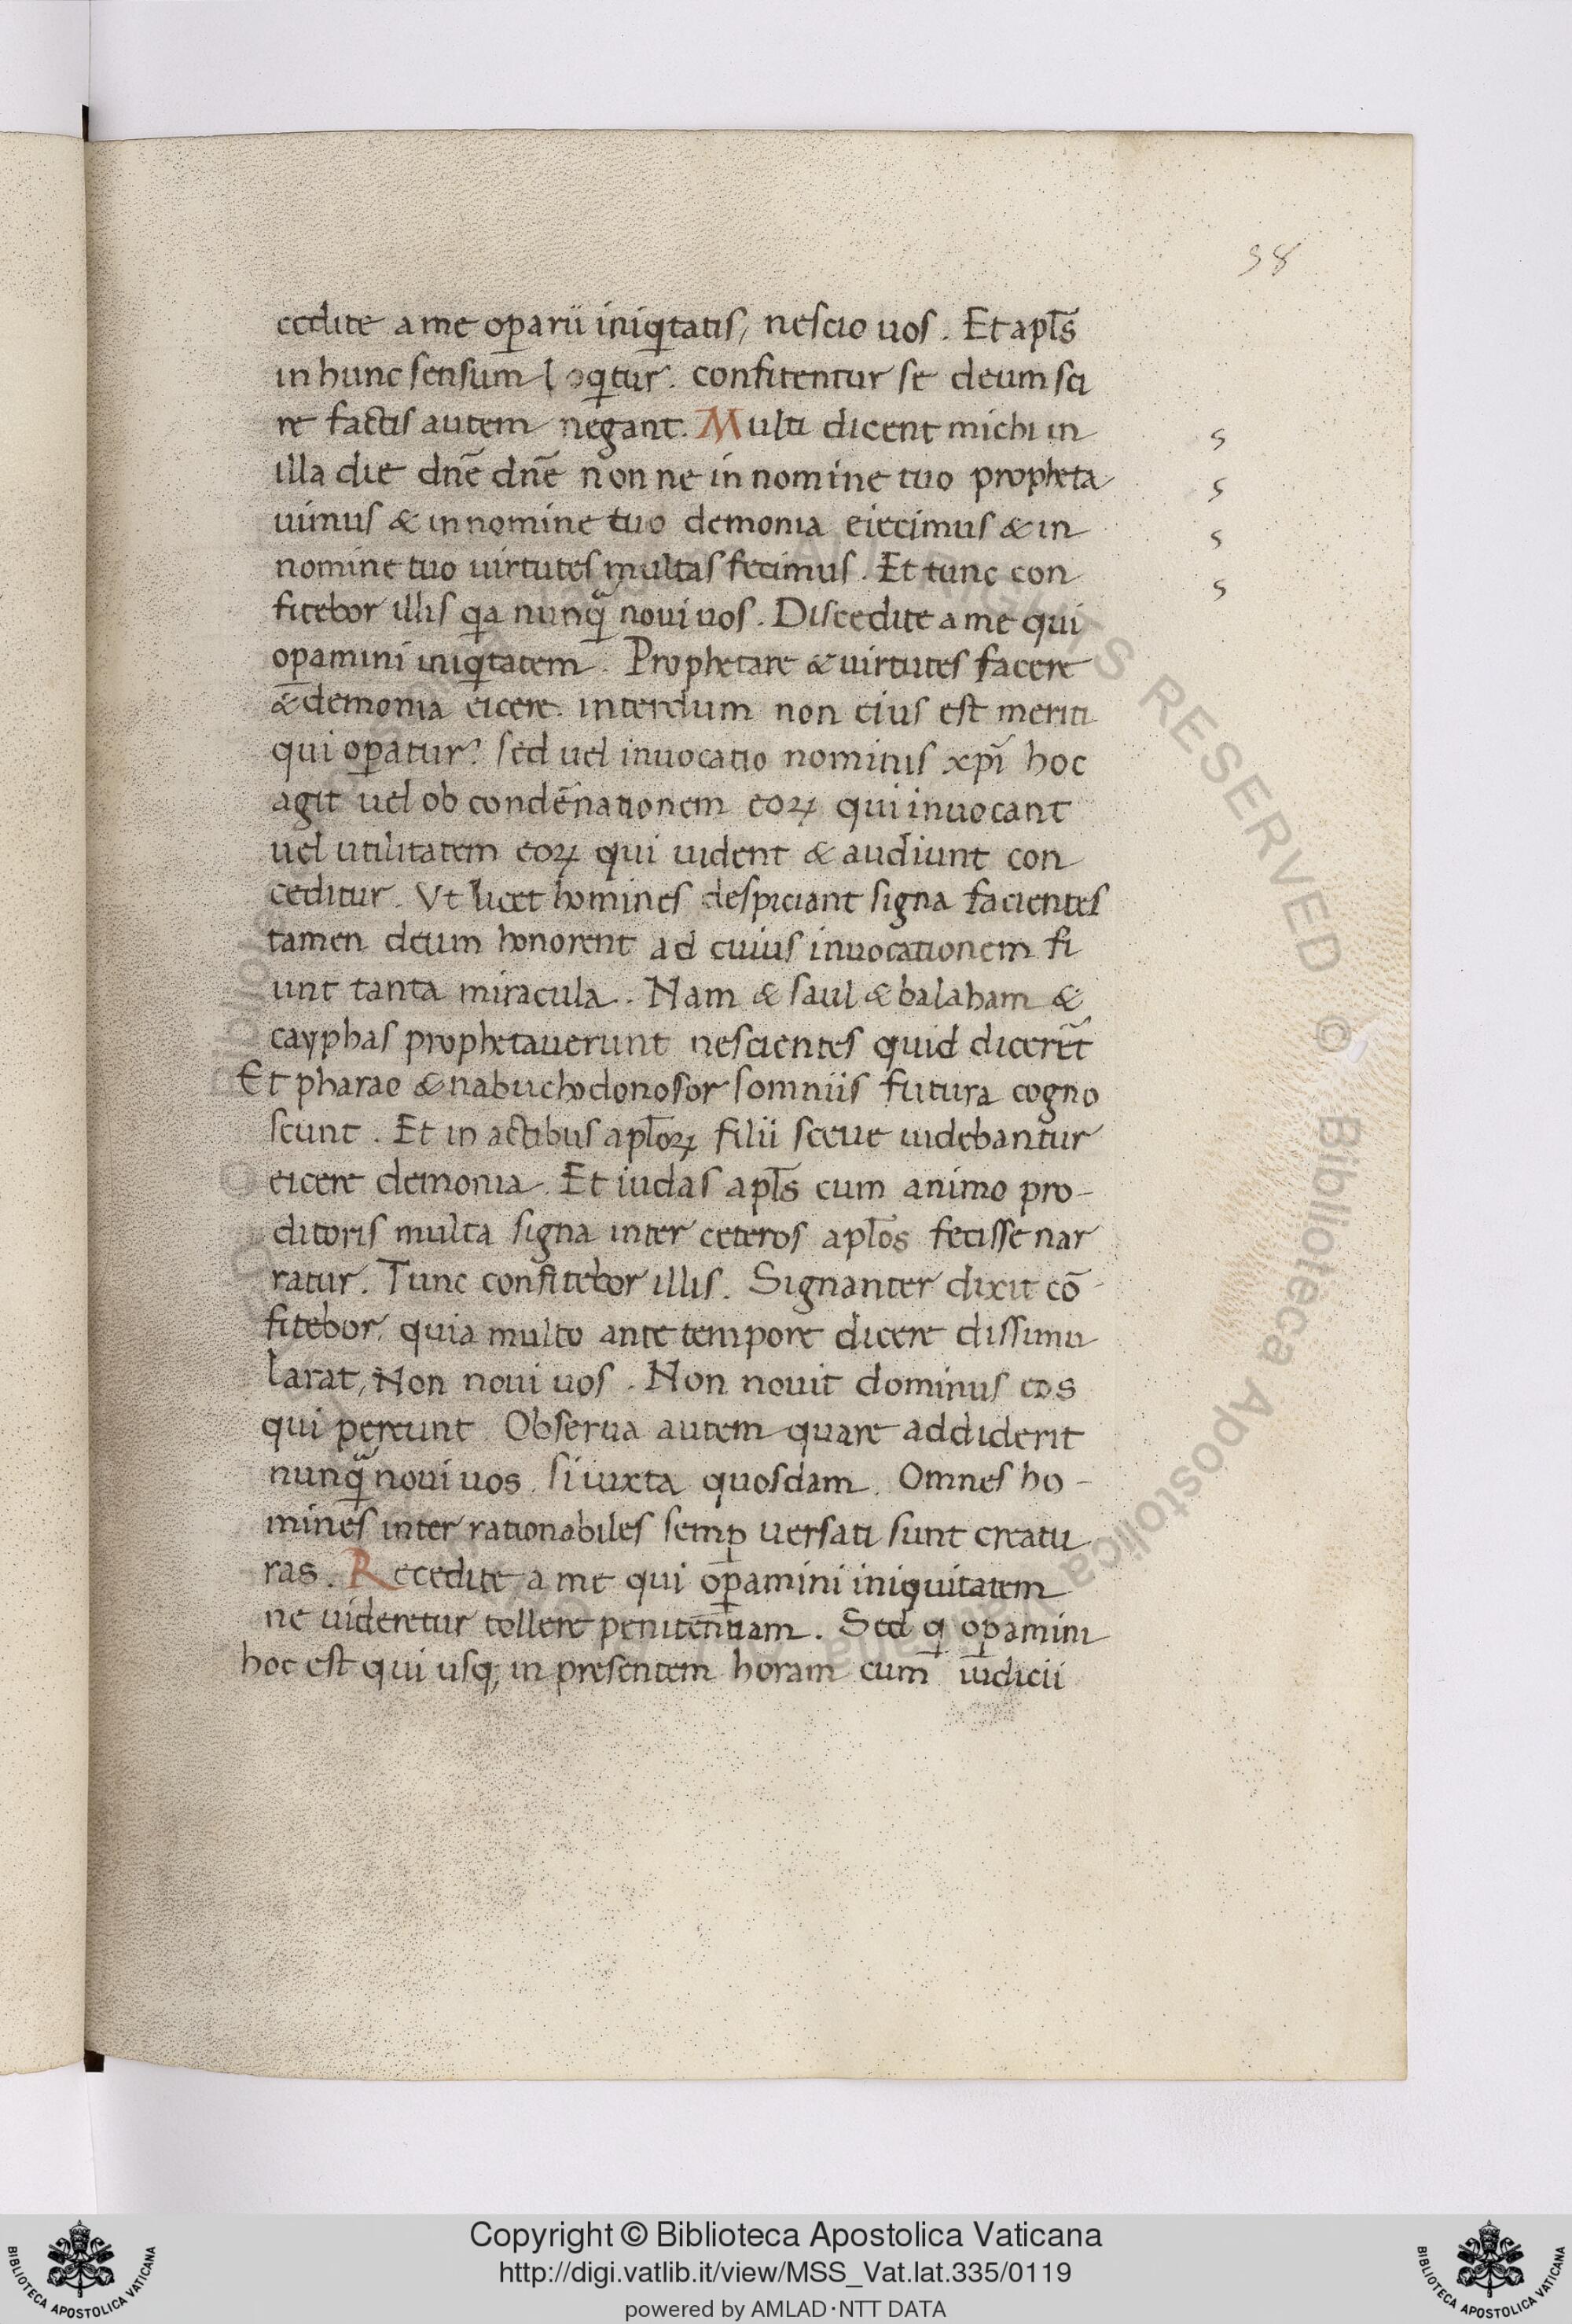 58
cedite a me oꝑarii iniqͥtatis, nescio uos. Et apl̅s
in hunc sensum loqͥtur. confitentur se deum sci
re factis autem negant. Multi dicent michi in
illa die dn̅e dn̅e non ne in nomine tuo propheta
uimus & in nomine tuo demonia eiecimus & in
nomine tuo uirtutes multas fecimus. Et tunc con
fitebor illis qͥa nunqᷓ noui uos. Discedite a me qui
oꝑamini iniqͥtatem. Prophetare & uirtutes facere
& demonia eicere. interdum non eius est meriti
qui oꝑatur? sed uel inuocatio nominis xp̅i hoc
agit uel ob conde̅nationem eoꝝ qui inuocant
uel utilitatem eoꝝ qui uident & audiunt con
ceditur. Vt licet homines despiciant signa facientes
tamen deum honorent ad cuius inuocationem fi
unt tanta miracula. Nam & saul & balaham &
cayphas prophetauerunt nescientes quid dicere̅t
Et pharao & nabuchodonosor somniis futura cogno
scunt. Et in actibus apl̅oꝝ filii sceue uidebantur
eicere demonia. Et iudas apl̅s cum animo pro-
ditoris multa signa inter ceteros apl̅os fecisse nar
ratur. Tunc confitebor illis. Signanter dixit co̅
fitebor. quia multo ante tempore dicere dissimu
larat, Non noui uos. Non nouit dominus eos
qui pereunt. Obserua autem quare addiderit
nunqᷓ noui uos. si iuxta quosdam. Omnes ho-
mines inter rationabiles semꝑ uersati sunt creatu
ras. Recedite a me qui oꝑamini iniquitatem
ne uideretur tollere penitentiam. Sed qͥ oꝑamini
hoc est qui usq; in presentem horam cum iudicii
s
s
s
s
ALL RIGHTS RESERVED © Biblioteca Apostolica Vaticana
Copyright © Biblioteca Apostolica Vaticana
http://digi.vatlib.it/view/MSS_Vat.lat.335/0119
powered by AMLAD·NTT DATA
BIBLIOTECA APOSTOLICA VATICANA
BIBLIOTECA APOSTOLICA VATICANA